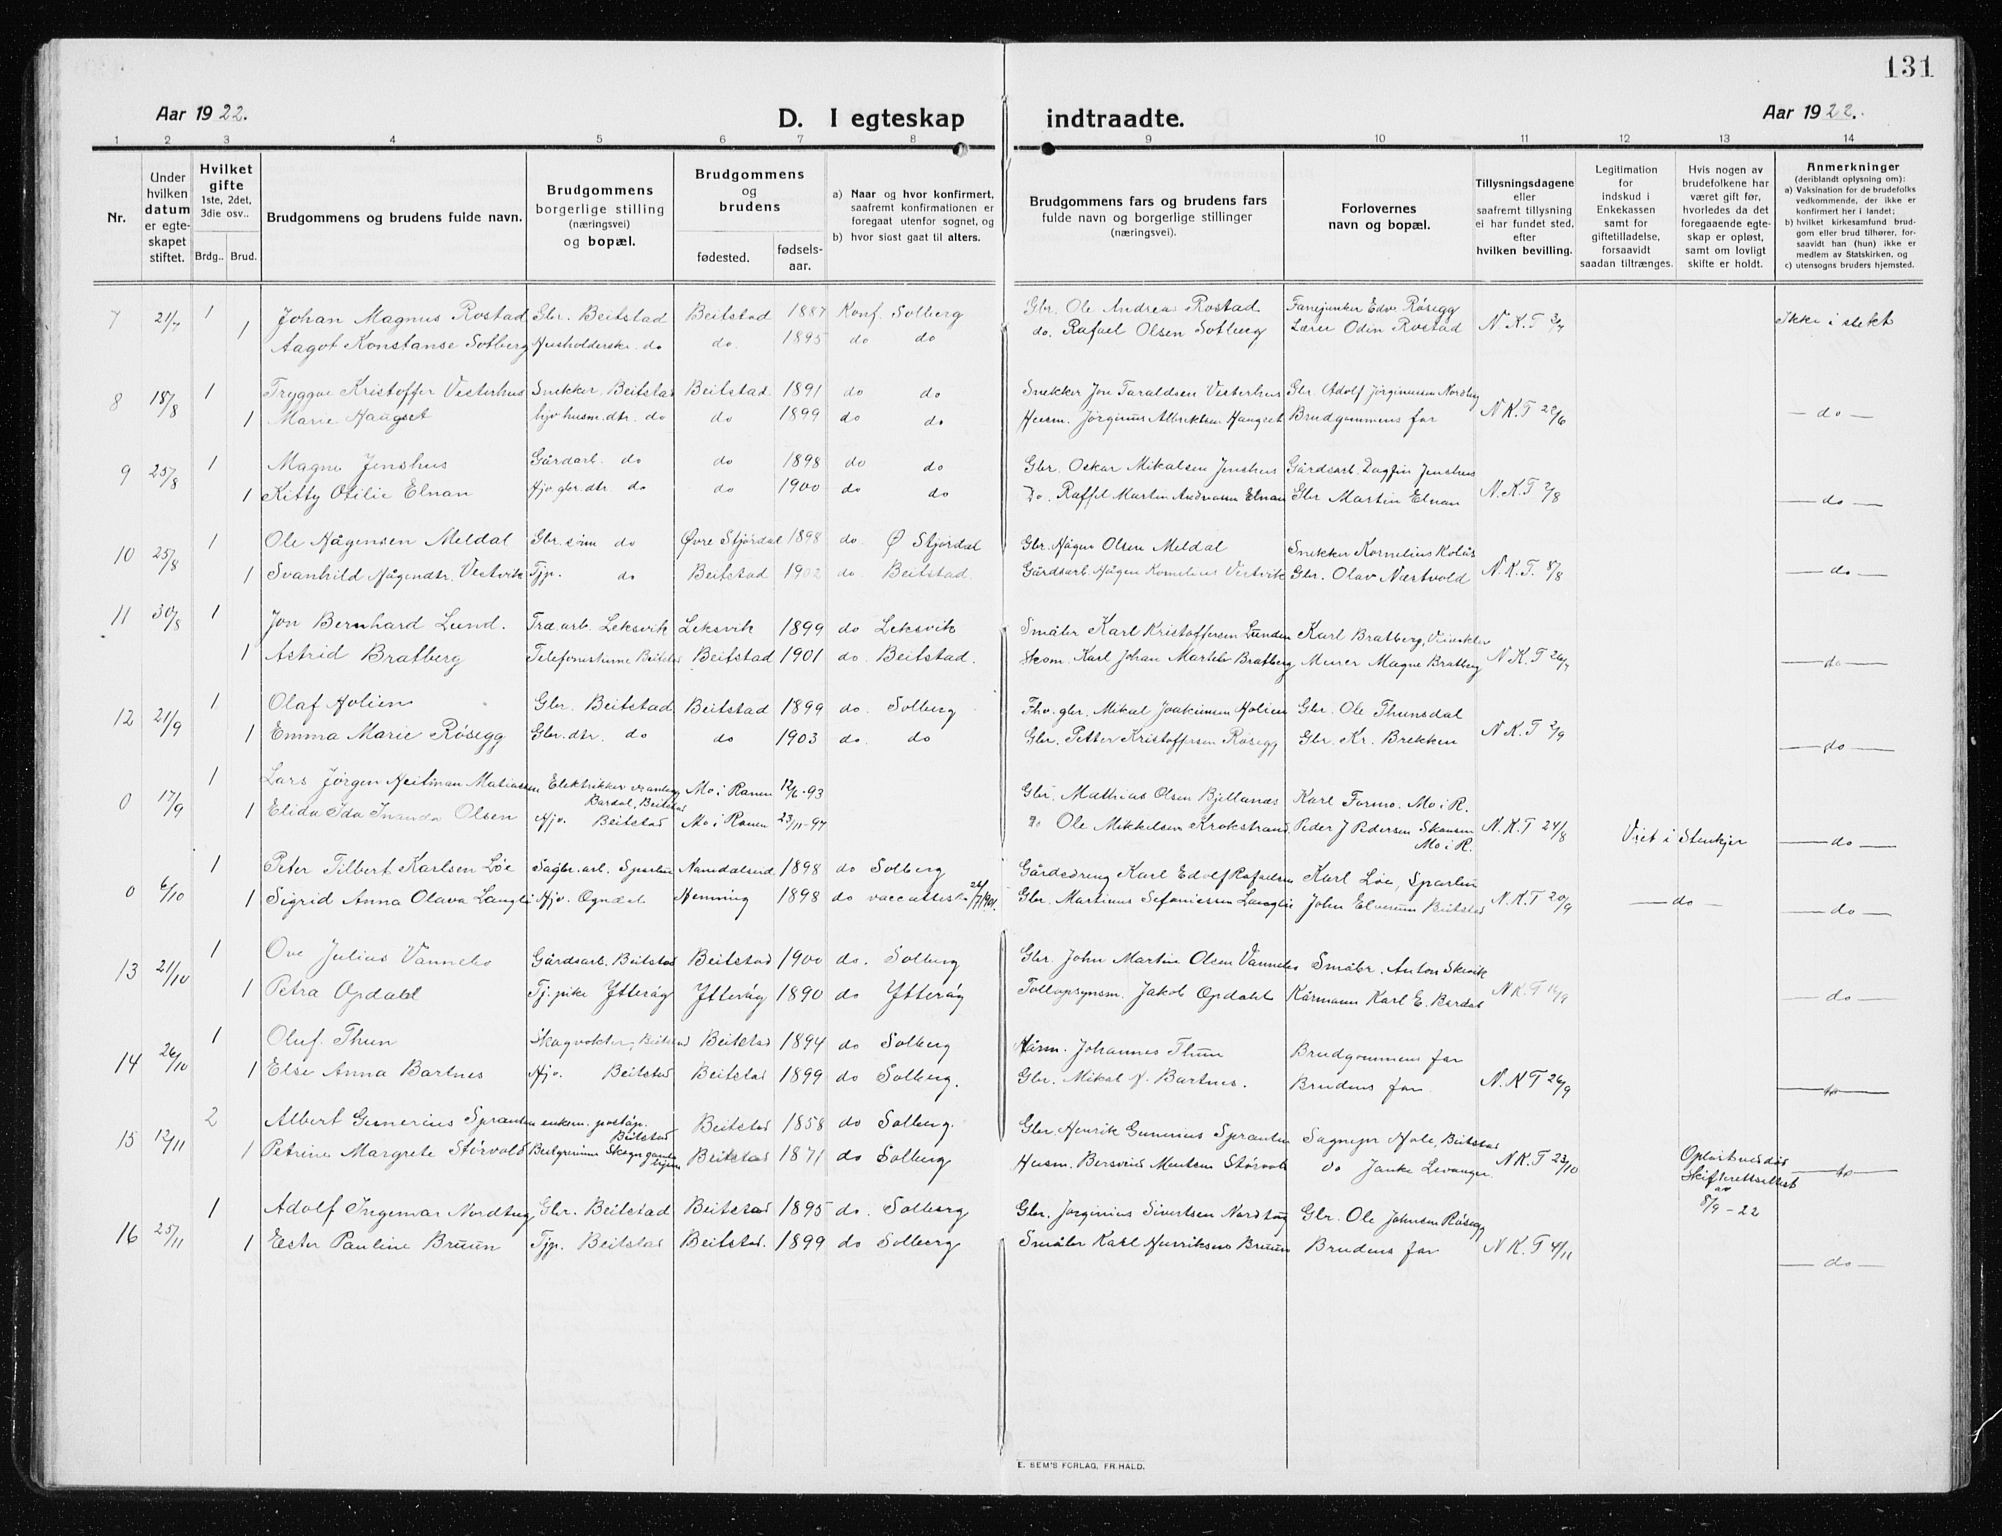 131
Aar 1922. D. I egteskap indtraadte. Aar 1922.
1 2 3 4 5 6 7 8 9 10 11 12 13 14
Nr.
Under hvilken datum er egteskapet stiftet.
Hvilket gifte 1ste, 2det, 3die osv..
Brdg.. Brud.
Brudgommens og brudens fulde navn.
Brudgommens borgerlige stilling (næringsvei) og bopæl.
Brudgommens og brudens
fødested.
fødsels-aar.
a) Naar og hvor konfirmert, saafremt konfirmationen er foregaat utenfor sognet, og
b) hvor sidst gaat til alters.
Brudgommens fars og brudens fars fulde navn og borgerlige stillinger (næringsvei).
Forlovernes navn og bopæl.
Tillysningsdagene eller saafremt tillysning ei har fundet sted, efter hvilken bevilling.
Legitimation for indskud i Enkekassen samt for giftetilladelse, forsaavidt saadan tiltrænges.
Hvis nogen av brudefolkene har været gift før, hvorledes da det foregaaende egteskap er opløst, samt om lovligt skifte er holdt.
Anmerkninger (deriblandt oplysning om): a) Vaksination for de brudefolks vedkommende, der ikke er konfirmert her i landet; b) hvilket kirkesamfund brudgom eller brud tilhører, forsaavidt han (hun) ikke er medlem av Statskirken, og c) utensogns bruders hjemsted.
7 21/7 1 Johan Magnus Rostad Gbr. Beitstad Beitstad 1887 Konf. Solberg Gbr. Ole Andreas Rostad Fanejunker Edv. Røsegg N.K.T 3/7 Ikke i slekt
1 Aagot Konstanse Solberg Husholderske do do. 1895 do do do. Rafael Olsen Solberg Lærer Odin Rostad
8 18/8 1 Tryggve Kristoffer Vesterhus Snekker Beitstad Beitstad 1891 do do Snekker Jon Taraldsen Vesterhus Gbr Adolf Jørginusen Nordtug
1 Marie Haugset hjv husm.dtr. do do 1899 do do Husm. Jørginus Albriktsen Haugset Brudgommens far N.K.T 28/6 — do —
9 25/8 1 Magne Jenshus Gårdarb. do do 1898 do do Gbr. Oskar Mikalsen Jenshus Gårdsarb. Dagfin Jenshus
1 Kitty Otilie Elnan Hjv gbr.dtr. do do 1900 do do Do. Raffel Martin Andreassen Elnan Gbr Martin Elnan N.K.T 2/8 — do —
10 25/8 1 Ole Hågensen Meldal Gbr.søn do Øvre Stjørdal 1898 do. Ø Stjørdal Gbr. Hågen Olsen Meldal Snekker Kornelius Kolås
1 Svanhild Hågendtr. Vestvik Tjp. do Beitstad 1902 do Beitstad Gårdsarb. Hågen Kornelius Vestvik Gbr. Olav Næstvold N.K.T. 8/8 — do —
11 30/8 1 Jon Bernhard Lund. Træ.arb. Leksvik Leksvik 1899 do Leksvik Småbr Karl Kristoffersen Lunden Karl Bratberg,
1 Astrid Bratberg Telefonistinne Beitstad Beitstad 1901 do. Beitstad. Skom. Karl Johan Bratberg Murer Magne Bratberg N.K.T 26/7 — do —
12 21/9 1 Olaf Holien Gbr. Beitstad Beitstad 1899 do. Solberg Fhv. gbr. Mikal Joakimsen Holien Gbr. Ole Thunsdal
1 Emma Marie Røsegg Gbr.dtr. do do 1903 do. do Gbr. Petter Kristoffersen Røsegg Gbr. Kr. Brekken N.K.T 2/9 — do —
0 17/9 1 Lars Jörgen Heitman Matiassen Elektrikker v. anlegg Bardal, Beitstad Mo i Ranen 12/6-93 Gbr. Mathias Olsen Bjellanes Karl Formo. Mo i R.
1 Elida Ida Olsen Hjv. Beitstad Mo i Ranen 23/11-97 do Ole Mikkelsen Krokstrand Peder J Pedersen Skansen Mo i R. N.K.T 24/8 Viet i Stenkjer — do —
0 6/10 1 Peter Tilbert Karlsen Løe Sagbr.arb. Sparbu Namdalseid 1898 do Solberg Gårdsdreng Karl Edolf Rafaelsen Karl Løe, Sparbu
1 Sigrid Anna Olava Langli Hjv. Ogndal Henning 1898 do vacc.attest 26/7 1901. Gbr. Martinus Sefaniassen Langli John Elverum Beitstad N.K.T 20/9 — do — — do —
13 21/10 1 Ove Julius Vannebo Gårdsarb. Beitstad Beitstad 1900 do. Solberg Gbr. John Martin Olsen Vannebo Småbr. Anton Skevik
1 Petra Opdahl Tj.pike Ytterøy Ytterøy 1890 do Ytterøy Tollopsynsm. Jakob Opdahl Kårmann Karl E. Bardal N.K.T 14/9 — do —
14 26/10 1 Oluf. Thun Skogvokter, Beitstad Beitstad 1894 do Solberg Kårm. Johannes Thun Brudgommens far
1 Else Anna Bartnes Hjv. Beitstad Beitstad 1899 do Solberg. Gbr. Mikal N. Bartnes. Brudens far N.K.T 26/9 — do —
15 12/11 2 Albert Gunerius Sprauten enkem. poståp. Beitstad Beitstad 1858 do Solberg. Gbr. Henrik Gunerius Sprauten Sogneprest Hole, Beitstad
1 Petrine Margrete Størvold Beitstad 1871 do Solberg Husm. Størvold do Janke Levanger. N.K.T 23/10 Opløst ved død Skifterettsattest av 8/9-22 — do —
16 25/11 1 Adolf Ingemar Nordtug Gbr. Beitstad Beitstad 1895 do. Solberg Gbr. Jørginius Sivertsen Nordtug Gbr. Ole Johnsen Røsegg
1 Ester Pauline Bruun Tjp. Beitstad Beitstad. 1899 do Solberg Småbr Karl Henriksen Bruun Brudens far N.K.T 4/11 — do —
E. SEM'S FORLAG, FR.HALD.